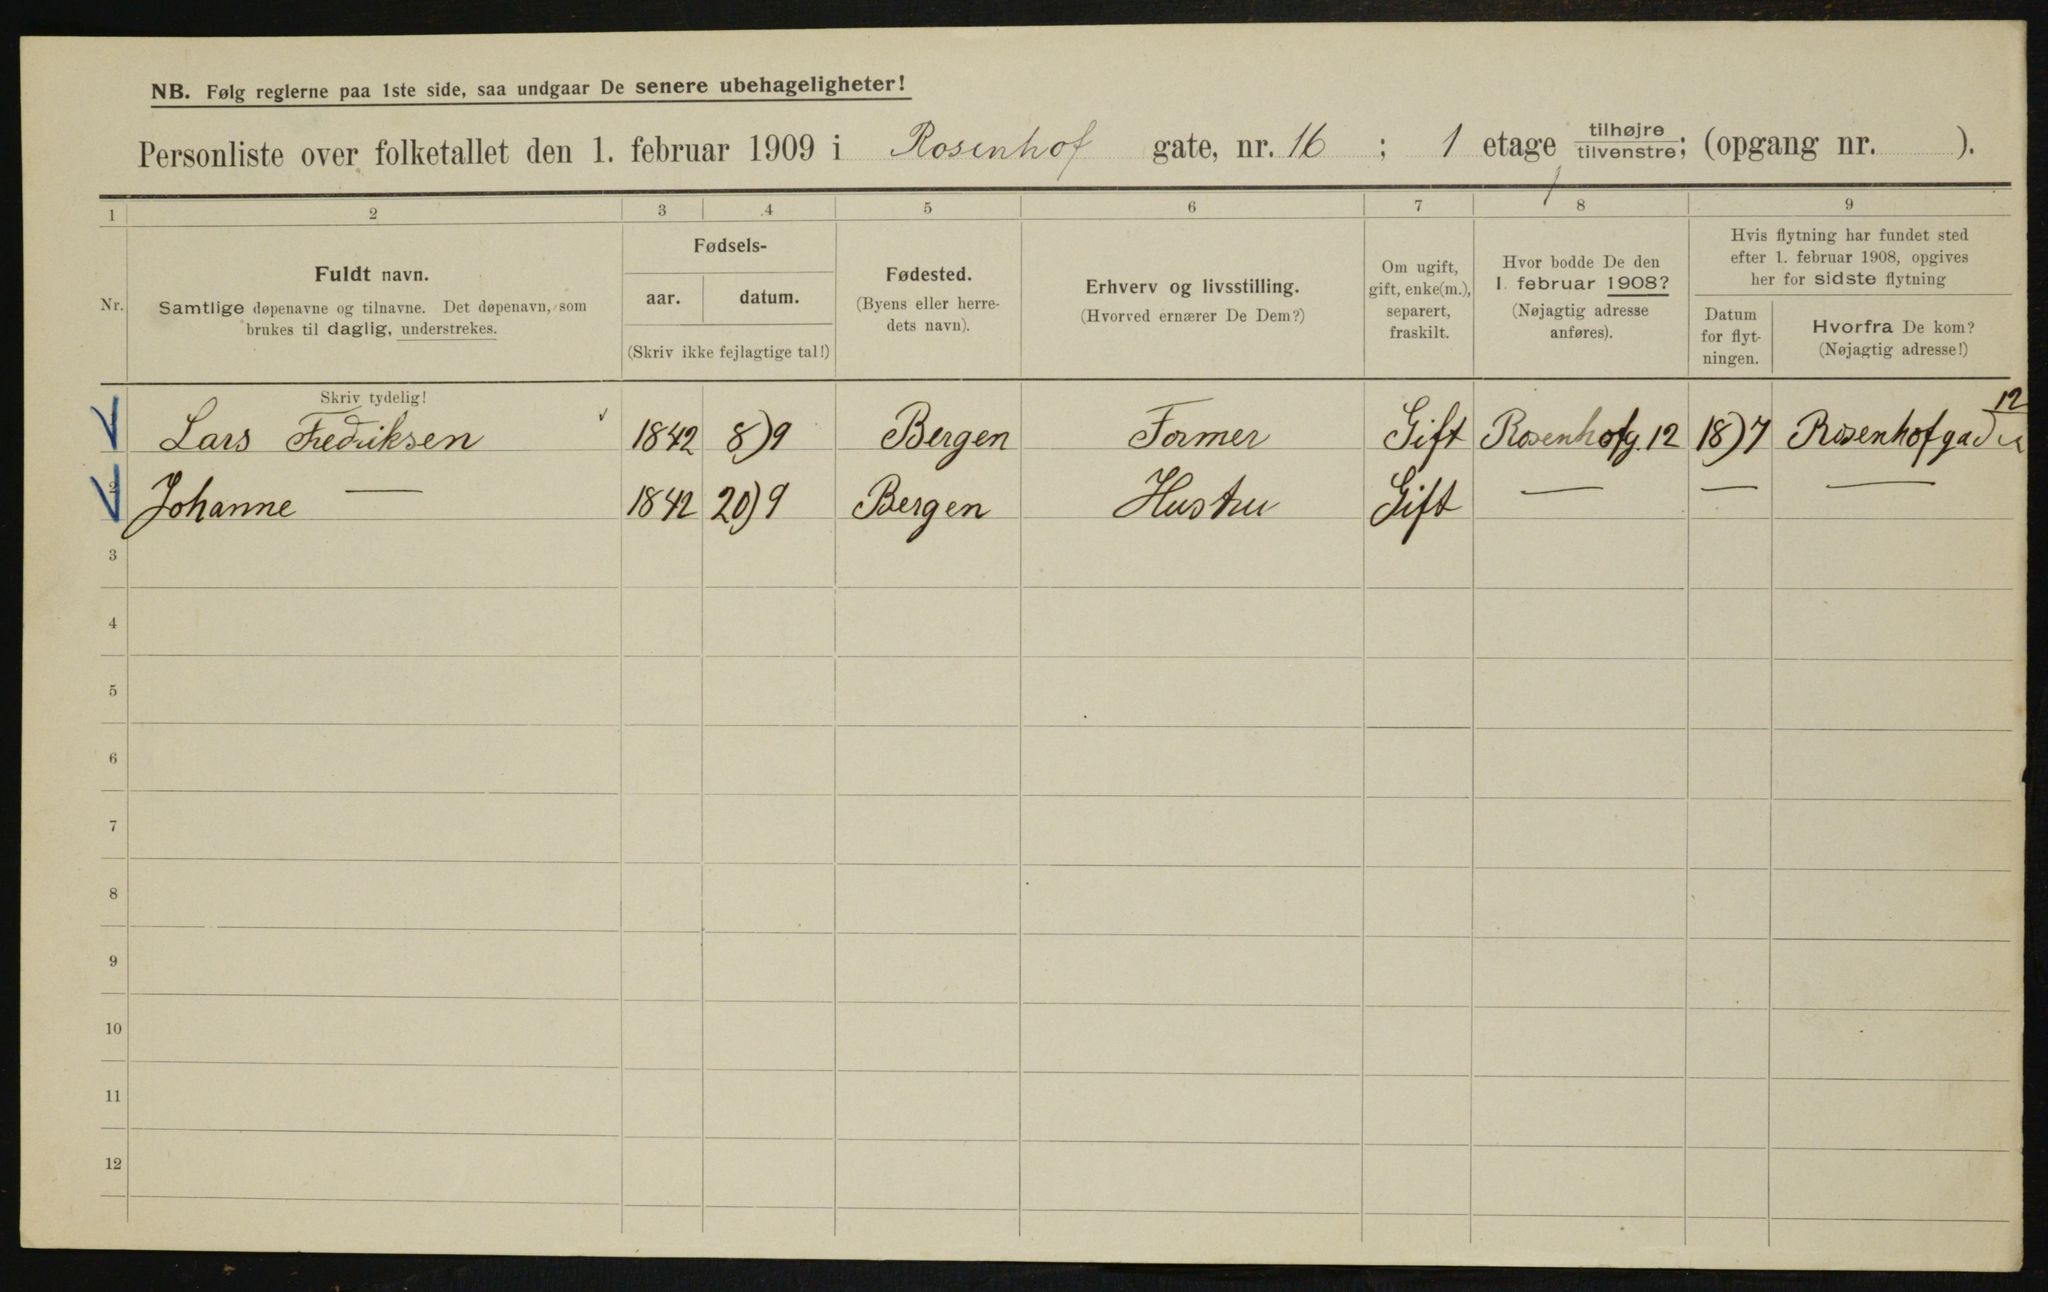 NB. Følg reglerne paa 1ste side, saa undgaar De senere ubehageligheter!
Personliste over folketallet den 1. februar 1909 i Rosenhof gate, nr. 16 ; 1 etage tilhøjre/tilvenstre; (opgang nr. ).
1 2 3 4 5 6 7 8 9
Nr.
Fuldt navn.
Samtlige døpenavne og tilnavne. Det døpenavn, som
brukes til daglig, understrekes.
Fødsels-
aar. datum.
(Skriv ikke fejlagtige tal!)
Fødested.
(Byens eller herre-
dets navn).
Erhverv og livsstilling.
(Hvorved ernærer De Dem?)
Om ugift,
gift, enke(m.),
separert,
fraskilt.
Hvor bodde De den
1. februar 1908?
(Nøjagtig adresse
anføres).
Hvis flytning har fundet sted
efter 1. februar 1908, opgives
her for sidste flytning
Datum
for flyt-
ningen.
Hvorfra De kom?
(Nøjagtig adresse!)
Skriv tydelig!
Lars Fredriksen 1842 8)9 Bergen Former Gift Rosenhofg. 12 18)7 Rosenhofgade 12
2 Johanne — 1842 20)9 Bergen Hustru Gift — — —
3
4
5
6
7
8
9
10
11
12